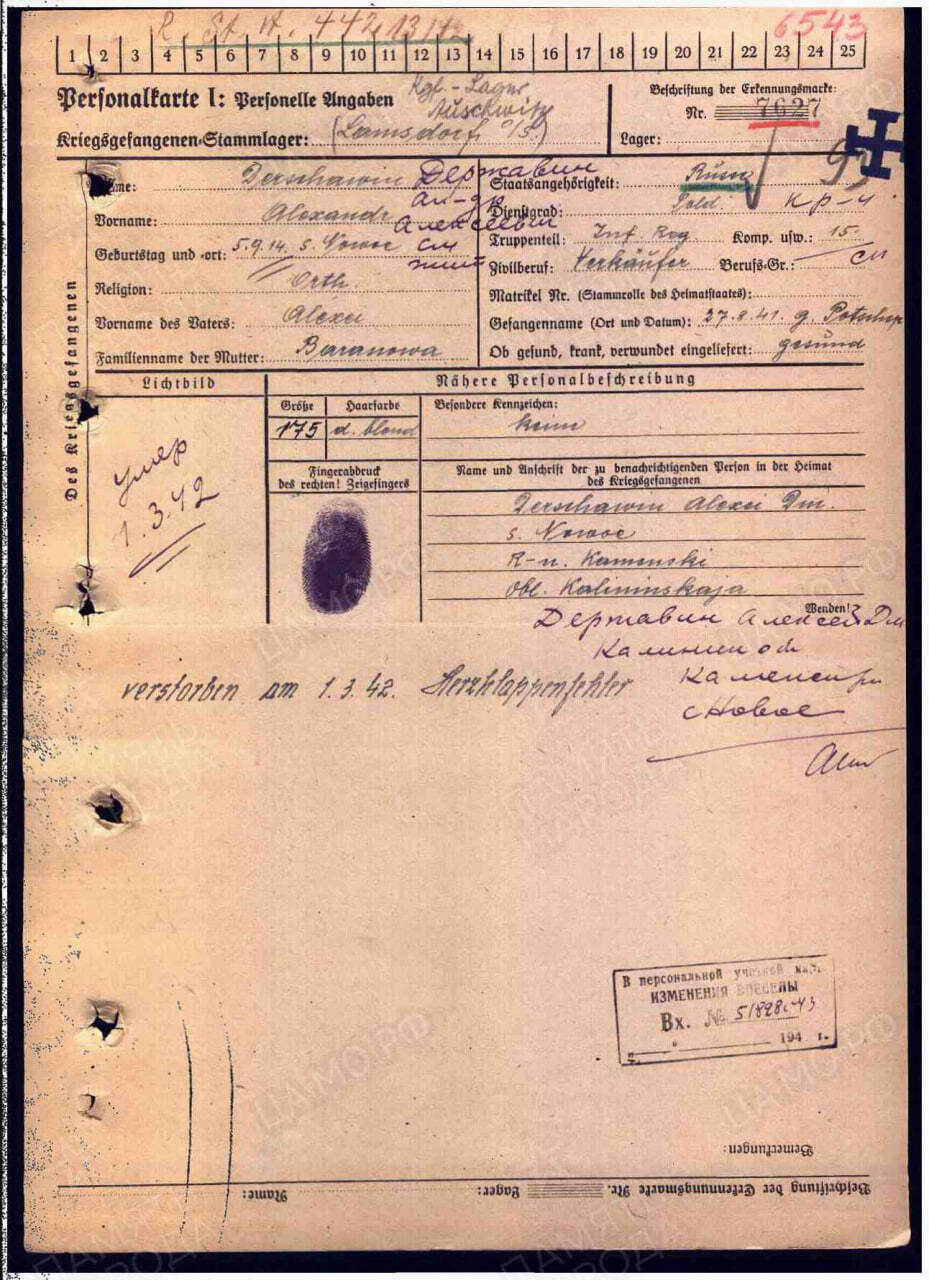 R. St. A. 442 13/42
6543
1 2 3 4 5 6 7 8 9 10 11 12 13 14 15 16 17 18 19 20 21 22 23 24 25
Personalkarte I: Personelle Angaben
Kgf.-Lager
Auschwitz
Beschriftung der Erkennungsmarke:
Nr. 7627
Kriegsgefangenen-Stammlager: (Lamsdorf O/S)
Lager:
Des Kriegsgefangenen
Name: Derschawin Державин
Staatsangehörigkeit: Russe
Vorname: Alexandr Ал-др
Алексеевич
Dienstgrad: Sold. кр-ц
Geburtstag und -ort: 5.9.14. s. Nowoe
Truppenteil: Inf. Reg. Komp. usw.: 15.
Zivilberuf: Verkäufer Berufs-Gr.:
Religion: Orth.
Matrikel Nr. (Stammrolle des Heimatstaates):
Vorname des Vaters: Alexei
Gefangenname (Ort und Datum): 27.8.41. g.
Familienname der Mutter: Baranowa
Ob gesund, krank, verwundet eingeliefert: gesund
Lichtbild
Nähere Personalbeschreibung
Größe Haarfarbe Besondere Kennzeichen:
175 d. blond keine
умер
1.3.42
Fingerabdruck
des rechten! Zeigefingers
Name und Anschrift der zu benachrichtigenden Person in der Heimat
des Kriegsgefangenen
Derschawin Alexei Dm.
s. Nowoe
R-n. Kamenski
Obl. Kalininskaja
Wenden!
Державин Алексей Дм
Калинин обл
Каменск рн
с Новое
verstorben am 1.3.42. Herzklappenfehler
В персональной учетной карт.
ИЗМЕНЕНИЯ ВНЕСЕНЫ
Вх. № 51828-43
194 г.
Bemerkungen:
Name: Lager: Beschriftung der Erkennungsmarke Nr.
ПАМЯТЬ НАРОДА
ЦАМО РФ